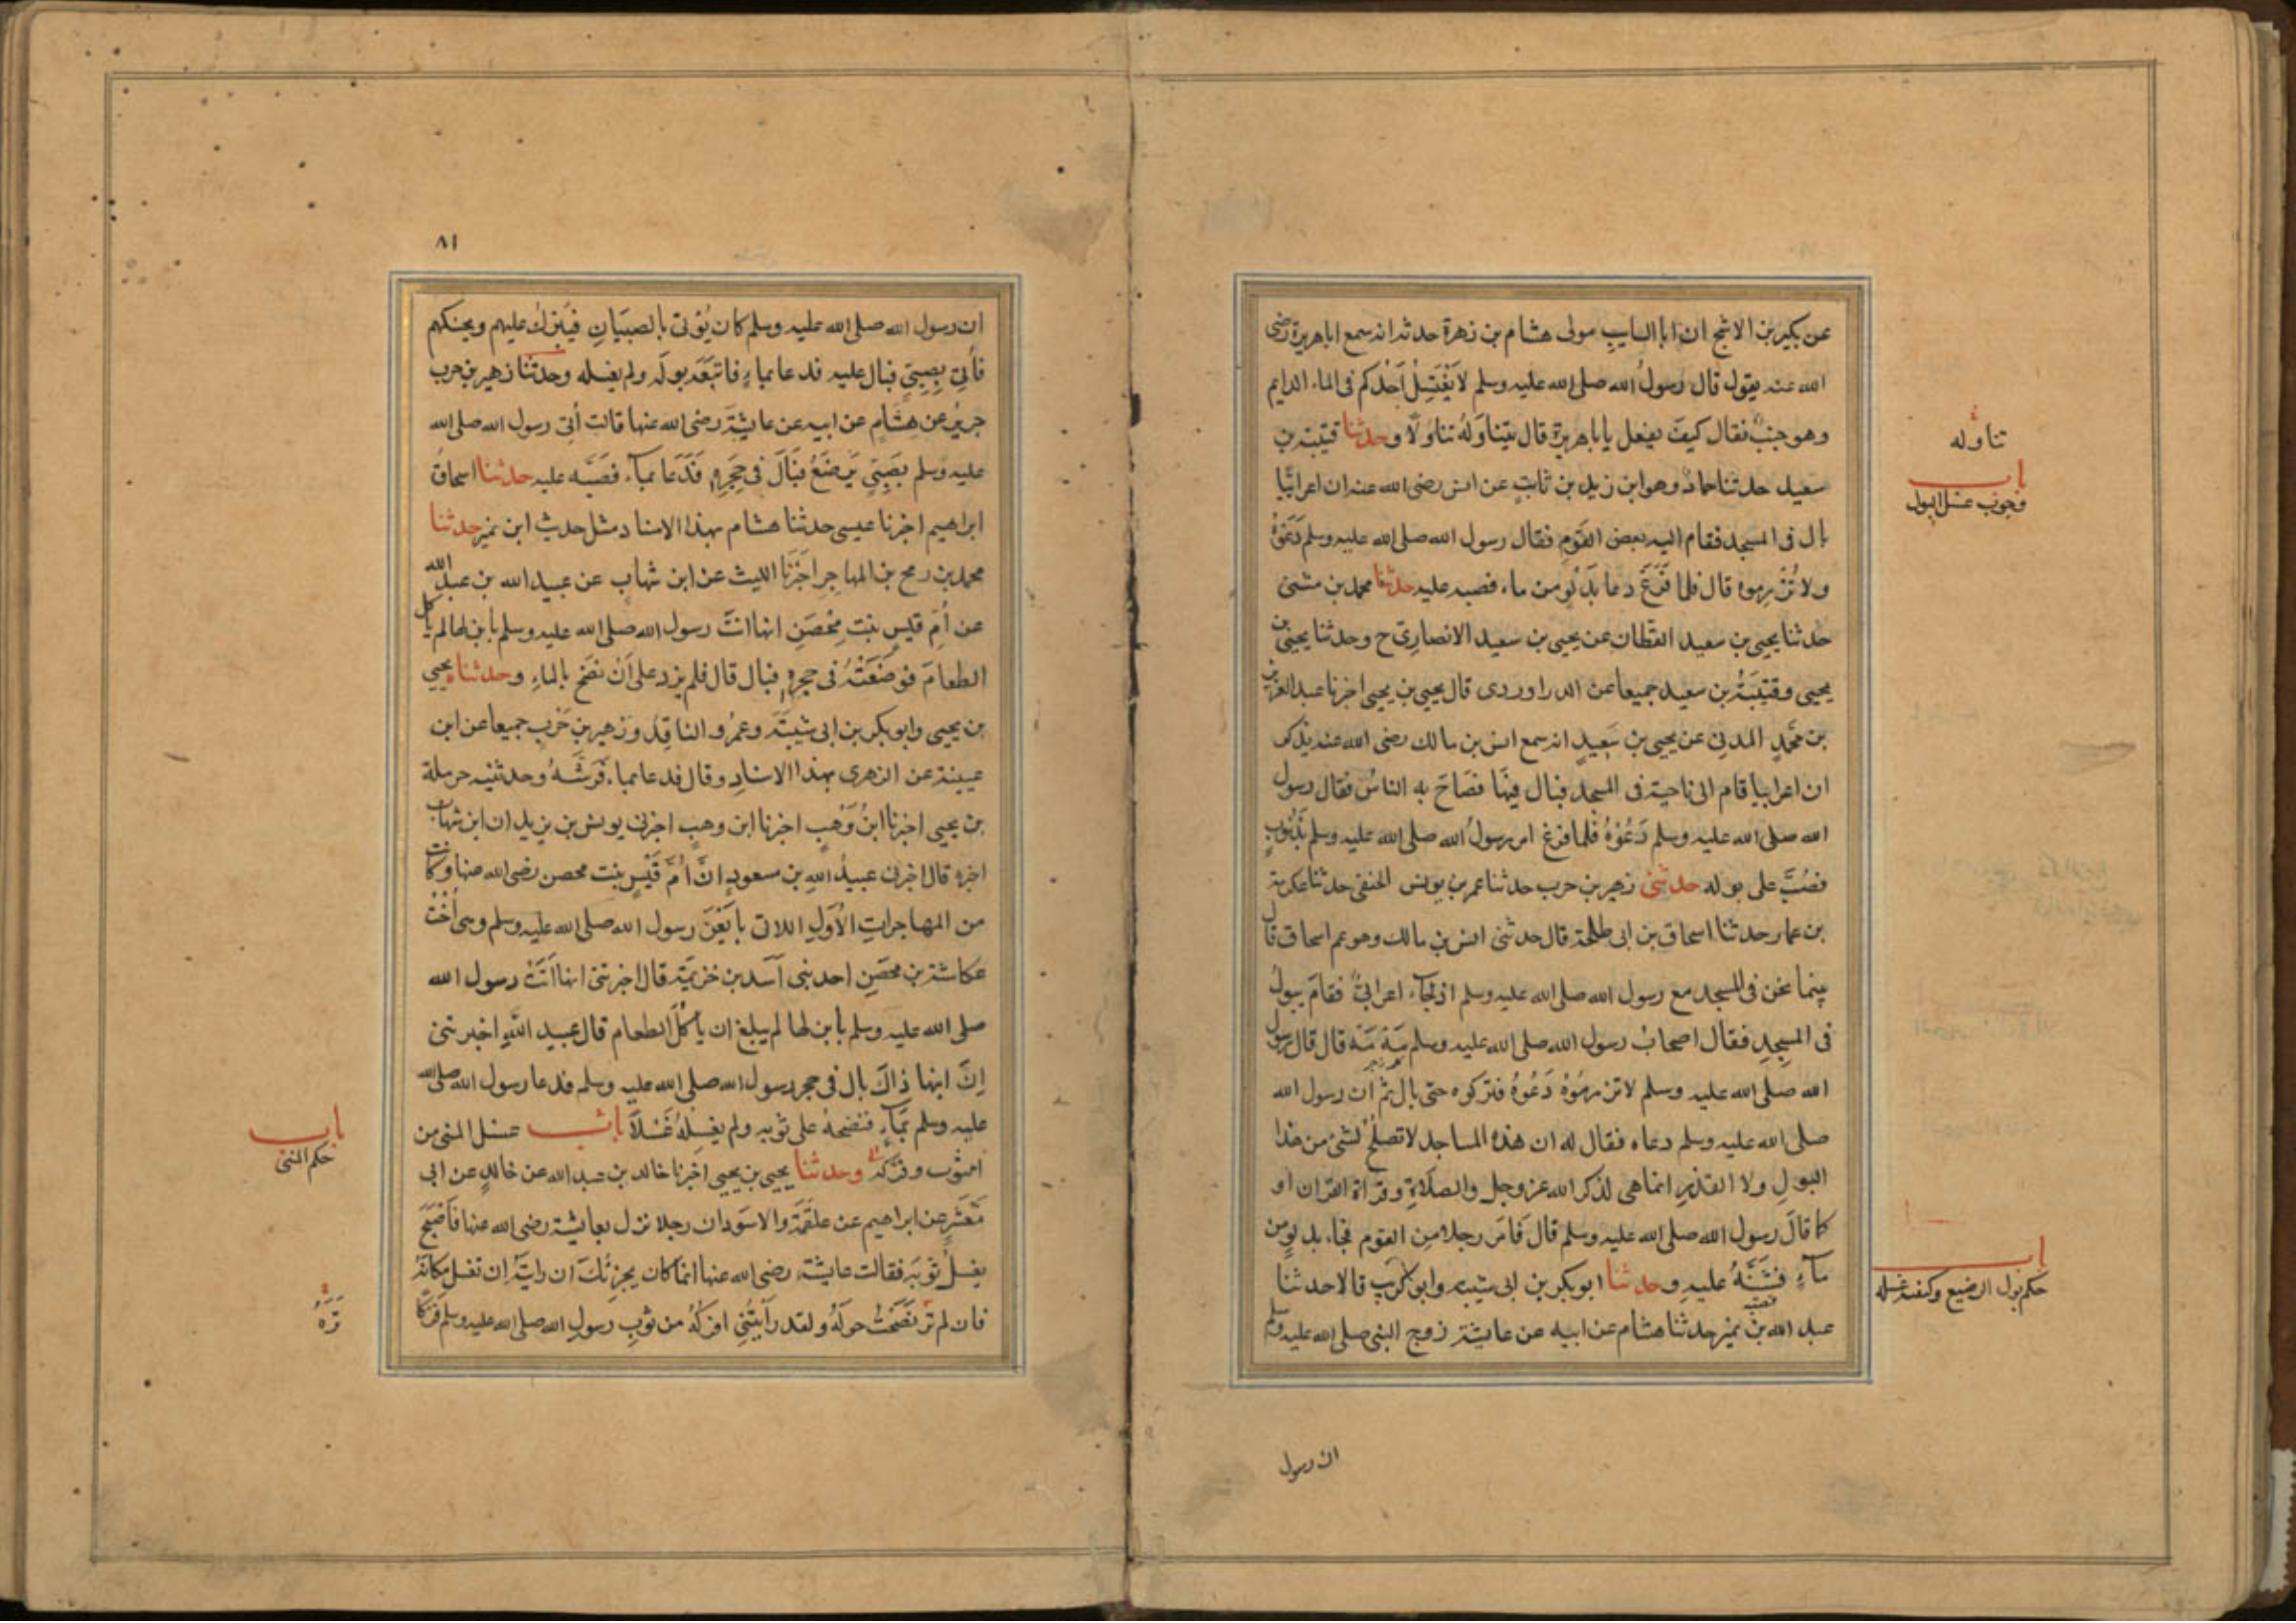 عن بكير بن الاشج ان ابا السايب مولى هشام بن زهرة حدثه انه سمع ابا هريرة رضى
الله عنه يقول قال رسول الله صلى الله عليه وسلم لا يَغْتَسِلْ اَحَدُكم فى الماء الدايم
وهو جنب فقال كيفَ يفعل يابا هريرة قال يتناوَلُهُ تناولًا وحدثنا قتيبة بن
تناوله
باب
وجوب غسل البول
سعيد حدثنا حمادٌ وهو ابن زيد بن ثابتٍ عن انس رضى الله عنه ان اعرابيًا
بال فى المسجد فقام اليه بعض القومِ فقال رسول الله صلى الله عليه وسلم دَعُوْهُ
ولا تُزْرِموه قال فلما فَرَغَ دعا بدَلْوٍ من ماء فصبه عليه حدثنا محمد بن مثنى
حدثنا يحيى بن سعيد القطان عن يحيى بن سعيد الانصارىّ ح وحدثنا يحيى بن
يحيى وقتيْبَةُ بن سعيد جميعا عن الدراوردى قال يحيى بن يحيى اخبرنا عبد العزيز
بن محمدٍ المدنى عن يحيى بن سَعِيدٍ انه سمع انس بن مالك رضى الله عنه يذكر
ان اعرابيا قام الى ناحية فى المسجد فبال فيهَا فصَاحَ به الناسُ فقال رسول
الله صلى الله عليه وسلم دَعُوْهُ فلما فرغ امر رسولُ الله صلى الله عليه وسلم بذَنُوبٍ
فصُبَّ على بوله حدثنى زهير بن حرب حدثنا عمر بن يونس الحنفى حدثنا عكرمة
بن عمار حدثنا اسحاق بن ابى طلحة قال حدثنى انس بن مالك وهو عم اسحاق قال
بينما نحن فى المسجد مع رسول الله صلى الله عليه وسلم اذ جَاء اعرابىٌّ فقامَ يبولُ
فى المسجِدِ فقال اصحابُ رسول الله صلى الله عليه وسلم مَهْ مَهْ قال قال رسول
الله صلى الله عليه وسلم لا تزرِمُوْهُ دَعُوْهُ فتركوه حتى بال ثم ان رسول الله
صلى الله عليه وسلم دعاه فقال له ان هذه المساجد لا تصلحُ لشئ من هذا
البولِ ولا القذرِ انما هى لذكر الله عز وجل والصلاةِ وقراة القران او
كما قالَ رسول الله صلى الله عليه وسلم قال فَامَر رجلا مِن القوم فجاء بدلوٍ من
ماءٍ فشَنَّهُ عليهِ وحدثنا ابو بكر بن ابى شيبه وابو كريب قالا حدثنا
باب
حكم بول الرضيع وكيفية غسله
عبد الله بن نمير حدثنا هشام عن ابيه عن عايشة زوج النبى صلى الله عليه وسلم
ان رسول
٨١
ان رسول الله صلى الله عليه وسلم كان يُؤتى بالصبيَانِ فيُبَرِّك عليهم ويحنكهم
فأُتِىَ بِصِبِيٍّ فبال عليه فدعا بماءٍ فاتبَعَه بولَه ولم يغسله وحدثنا زهير بن حرب
جريرٌ عن هِشَامٍ عن ابيه عن عايشَةَ رضى الله عنها قالت أُتِىَ رسول الله صلى الله
عليه وسلم بصَبِىٍّ يَرضَعُ فبَالَ فى حِجَرِهِ فَدَعَا بماء فصَبَّه عليه حدثنا اسحاقُ
ابراهيم اخبرنا عيسى حدثنا هشام بهذا الاسناد مثل حديث ابن نمير حدثنا
محمد بن رمح بن المهاجر اخبَرَنَا الليث عن ابن شهابٍ عن عبيد الله بن عبد الله
عن اُمّ قيسٍ بنتِ مِحْصَنٍ انها اتت رسول الله صلى الله عليه وسلم بابن لها لم ياكل
الطعامَ فوضَعَتْهُ فى حجرِهِ فبال قال فلم يزد على اَنْ نضح بالماءِ وحدثناه يحيى
بن يحيى وابو بكر بن ابى شيبَةَ وعمرٌو الناقِدُ وزهير بن حَرْبٍ جميعا عن ابن
عيينة عن الزهرى بهذا الاسنادِ وقال فدعا بماء فَرَشَّهُ وحدثنيه حرملة
بن يحيى اخبرنا ابنُ وَهْبٍ اخبرنا ابن وهبٍ اخبرنى يونس بن يزيد ان ابن شهاب
اخبره قال اخبرنى عبيدُ اللهِ بن مسعودٍ انَّ اُمَّ قَيْسٍ بنت محصن رضى الله عنها وكانت
من المهاجراتِ الاُوَلِ اللاتى بايَعْنَ رسول الله صلى الله عليه وسلم وهى اُخْتُ
عكاشة بن محصَنٍ احد بنى اَسَد بن خزيمَةَ قال اخبرتنى انها اَتَتْ رسول الله
صلى الله عليه وسلم بابن لها لم يبلغ ان ياكلَ الطعام قال عبيد اللهِ اخبرتنى
اِنَّ ابنها ذاكَ بال فى حجر رسول الله صلى الله عليه وسلم فدعا رسول الله صلى الله
عليه وسلم بمَاءٍ فنضحهُ على ثوبِهِ ولم يغسِلْهُ غَسْلًا باب غسل المنى من
باب
حكم المنىّ
الثوب وفركه وحدثنا يحيى بن يحيى اخبرنا خالد بن عبد الله عن خالدٍ عن ابى
مَعْشَرٍ عن ابراهيم عن علقَمَةَ والاسوَد ان رجلا نزل بعايشة رضى الله عنها فَاَصْبَحَ
يغسِلُ ثوبَه فقالت عايشة رضى الله عنها انما كان يجزئكَ ان رايتَهُ ان تغسل مكانَهُ
فان لم تر نضَحْتَ حولَهُ ولقد رأيتُنِى افركُهُ من ثوبِ رسولِ الله صلى الله عليه وسلم فركا
تَرَهُ